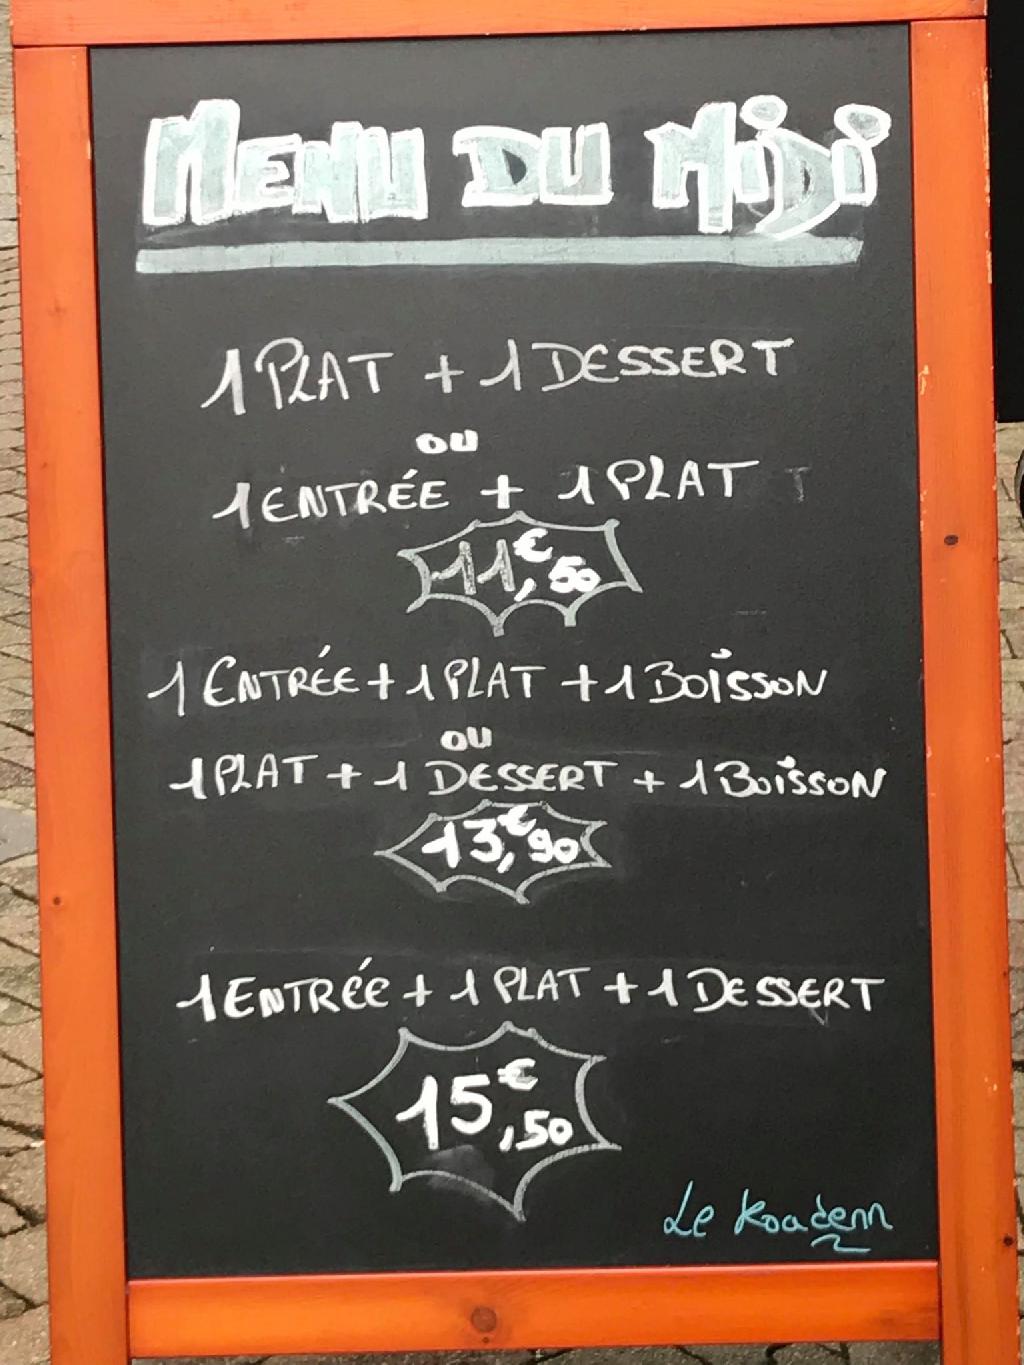 MENU DU MIDI
1 PLAT + 1 DESSERT
OU
1 ENTRÉE + 1 PLAT
11€,50
1 ENTRÉE + 1 PLAT + 1 BOISSON
OU
1 PLAT + 1 DESSERT + 1 BOISSON
13€,90
1 ENTRÉE + 1 PLAT + 1 DESSERT
15€,50
Le Koadenn